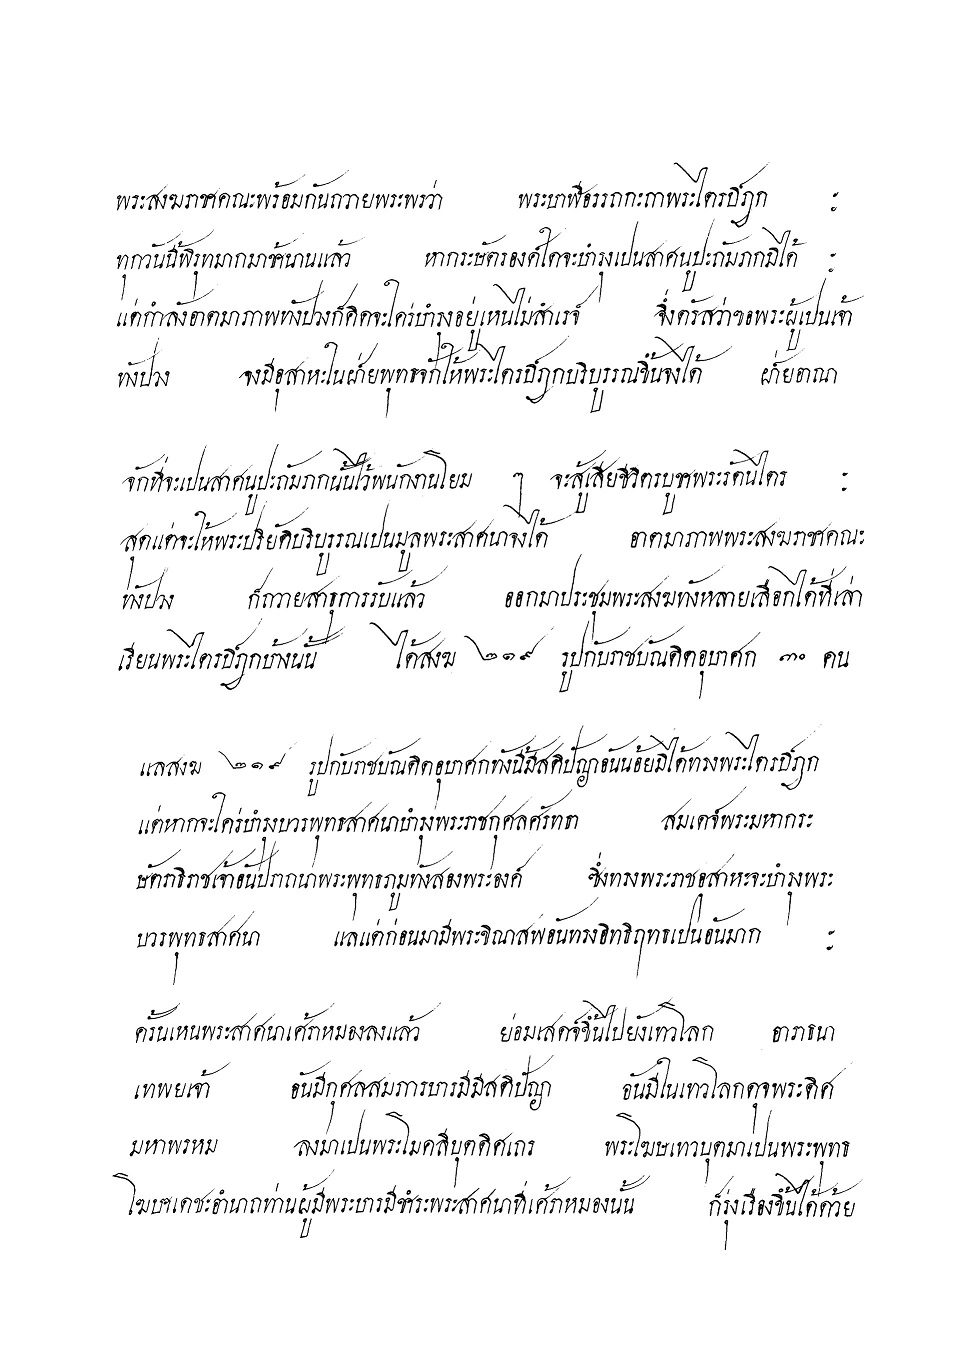 พระสงฆราชคณะพร้อมกันถวายพระพรว่า พระบาฬีอรรถกะถาพระไตรปิฎก ะ
ทุกวันนี้พิรุทมากมาช้านานแล้ว หากระษัตรองค์ใดจะบำรุงเปนสาศนูปะถัมภกมิได้ ะ
แต่กำลังอาตมาภาพทังปวงก็คิดจะใคร่บำรุงอยู่เหนไม่สำเรจ์ จึ่งตรัสว่าขอพระผู้เปนเจ้า
ทังปวง จงมีอุสาหะในฝ่ายพุทธจักให้พระไตรปิฎกบริบูรรณขึ้นจงได้ ฝ่ายอาณา
จักที่จะเปนสาศนูปะถัมภกนั้นไว้พนักงานโยม ๆ จะสู้เสียชีวิตรบูชาพระรัตนไตร ะ
สุดแต่จะให้พระปริยัติบริบูรรณเปนมูลพระสาศนาจงได้ อาตมาภาพพระสงฆราชคณะ
ทังปวง ก็ถวายสาธุการรับแล้ว ออกมาประชุมพระสงฆทังหลายเลือกได้ที่เล่า
เรียนพระไตรปิฎกบ้างนั้น ได้สงฆ ๒๑๙ รูปกับราชบัณดิตอุบาศก ๓๐ คน
แลสงฆ ๒๑๙ รูปกับราชบัณดิตอุบาศกทังนี้มีสติปัญาอันน้อยมิได้ทรงพระไตรปิฎก
แต่หากจะใคร่บำรุงบวรพุทธสาศนาบำรุงพระราชกุศลศรัทธา สมเดจ์พระมหากระ
ษัตราธิราชเจ้าอันปราถนาพระพุทธภูมทังสองพระองค์ ซึ่งทรงพระราชอุสาหะจะบำรุงพระ
บวรพุทธสาศนา แลแต่ก่อนมามีพระขิณาสพอันทรงอิทธิฤทธเปนอันมาก ะ
ครั้นเหนพระสาศนาเศร้าหมองลงแล้ว ย่อมเสดจ์ขึ้นไปยังเทวโลก อาราธนา
เทพยเจ้า อันมีกุศลสมภารบารมีมีสติปัญา อันมีในเทวโลกดุจพระดิศ
มหาพรหม ลงมาเปนพระโมคลีบุตดิศเถร พระโฆษเทวบุตมาเปนพระพุทธ
โฆษาเดชะอำนาถท่านผู้มีพระบารมีชำระพระสาศนาที่เศร้าหมองนั้น ก็รุ่งเรืองขึ้นได้ด้วย